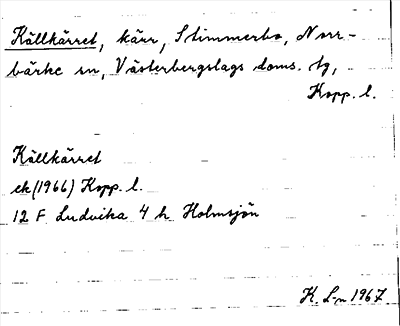 Källkärret, kärr, Stimmerbo, Norr-
bärke sn, Västerbergslags doms. tg,
Kopp. l.
Källkärret
ek (1966) Kopp. l.
12 F Ludvika 4 h Holmsjön
K. L-n 1967